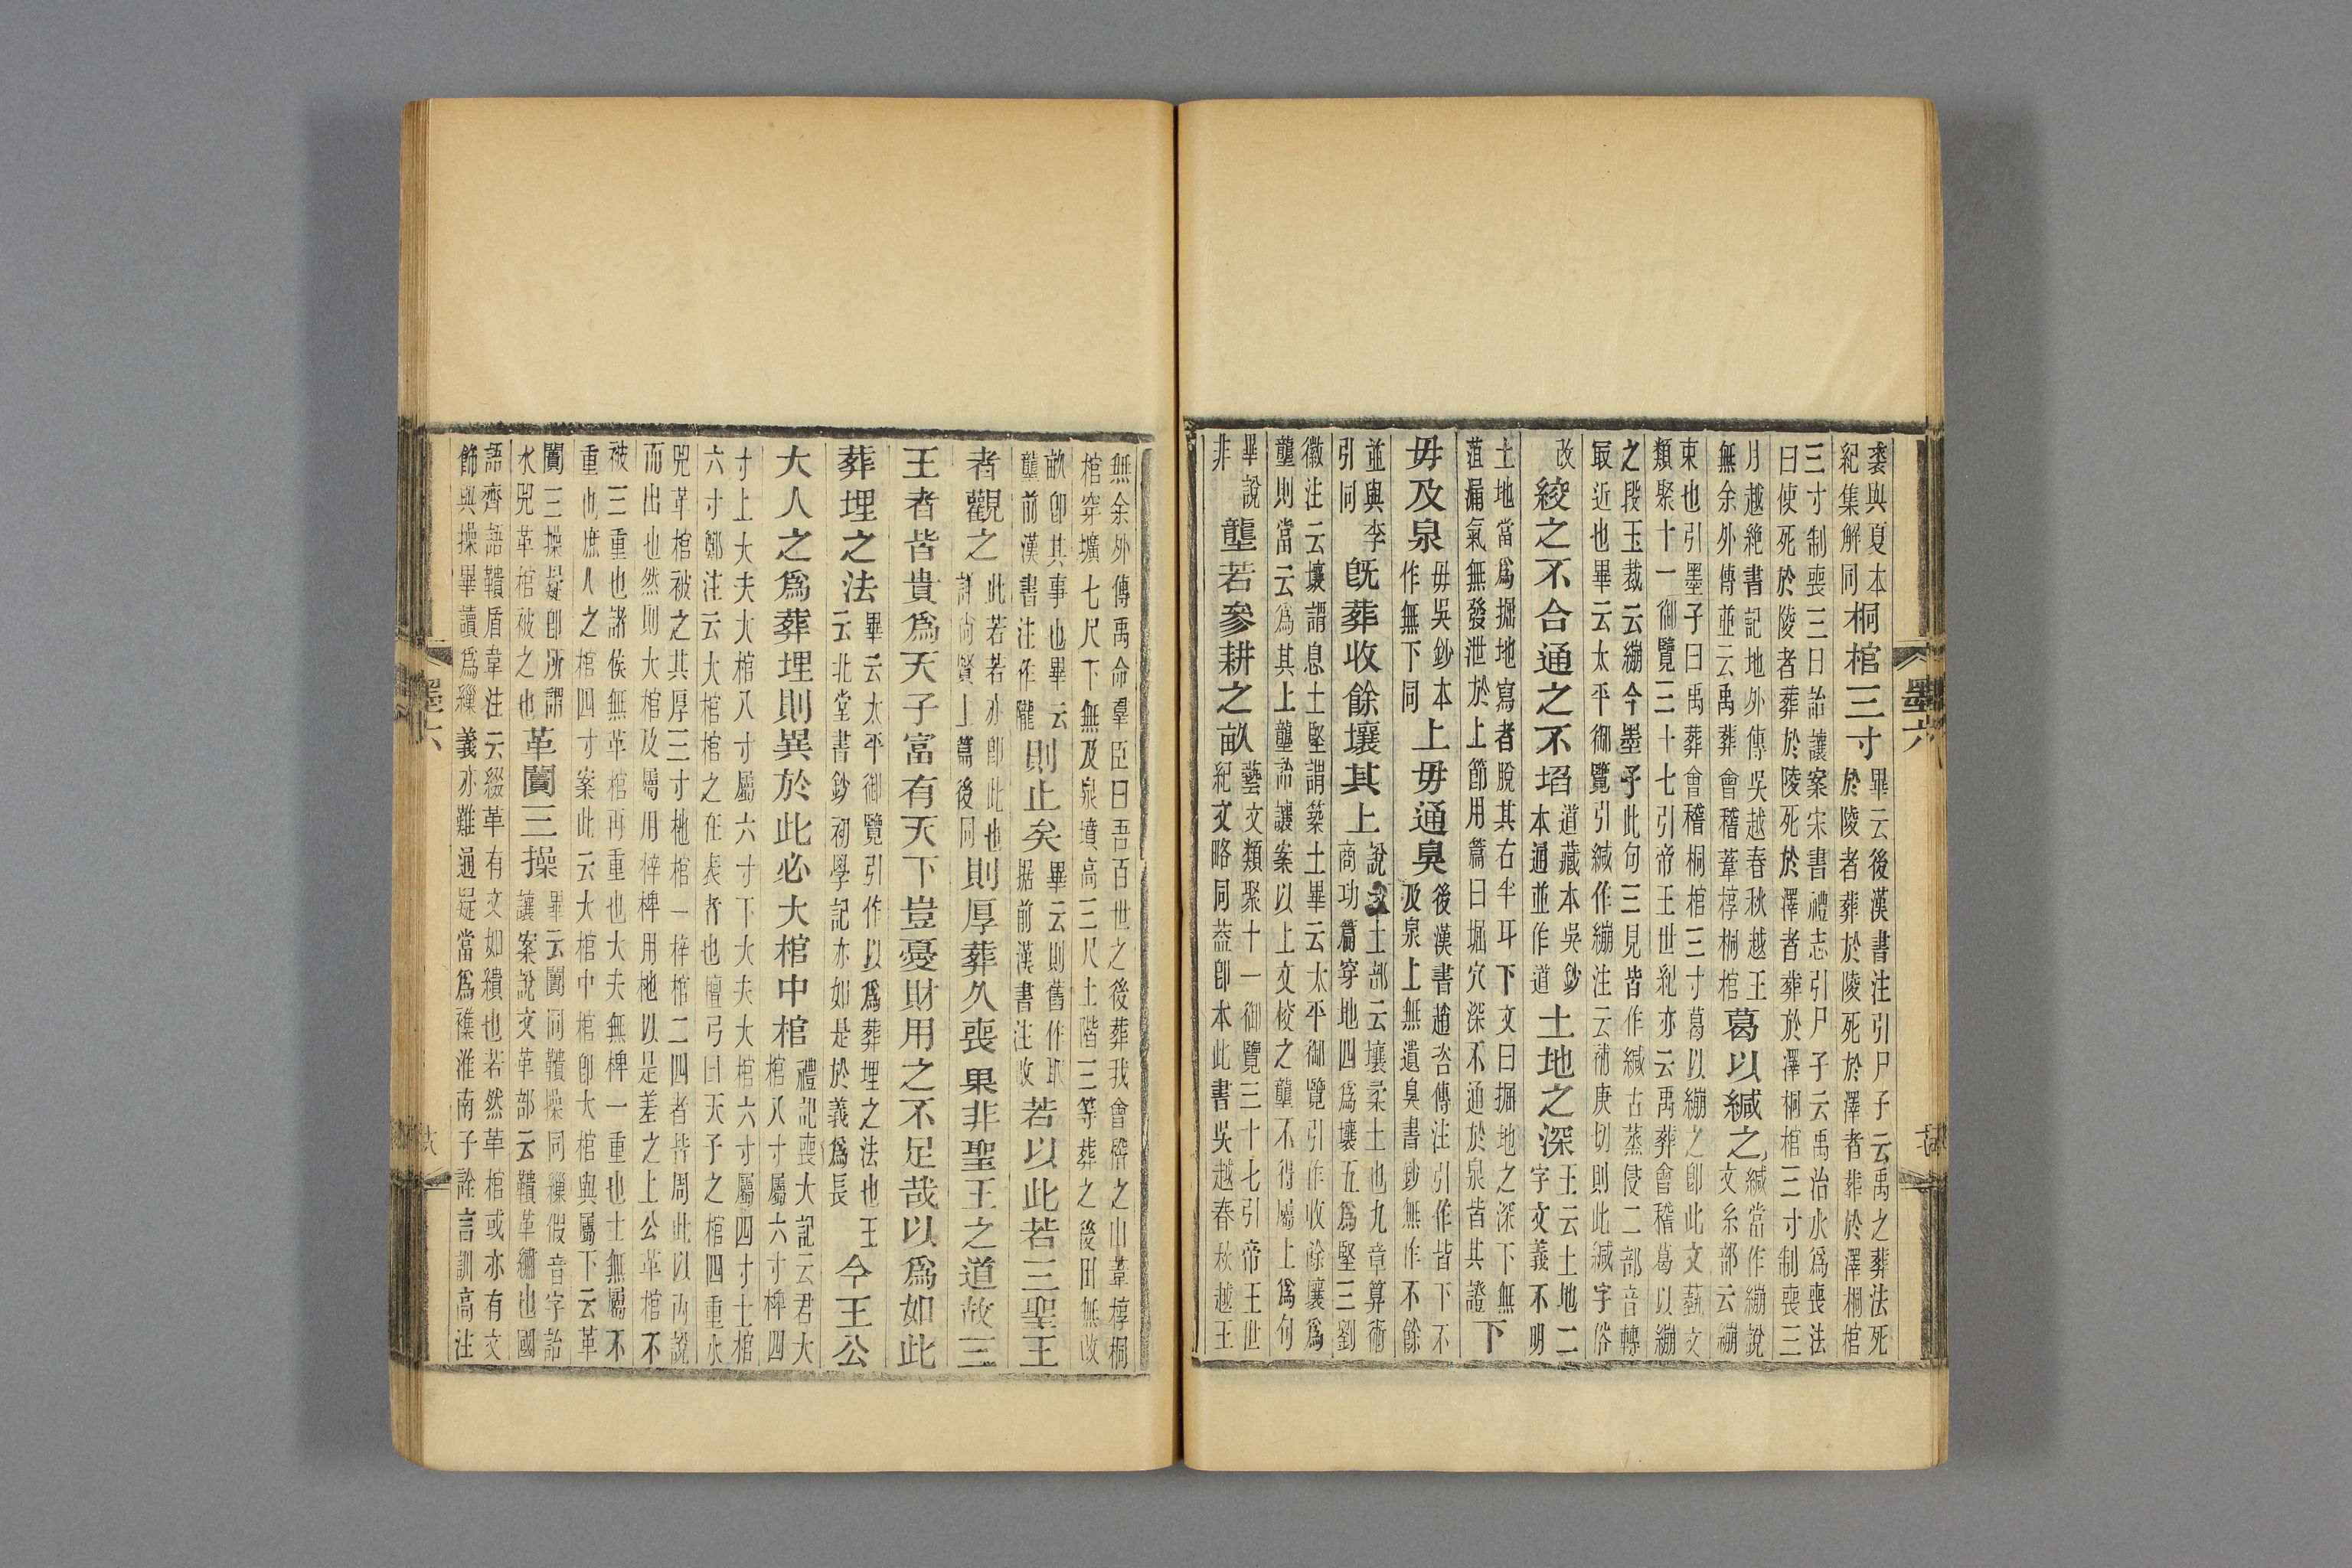 裘與夏本
紀集解同
桐棺三寸
畢云後漢書注引尸子云禹之葬法死
於陵者葬於陵死於澤者葬於澤桐棺
三寸制喪三日詒讓案宋書禮志引尸子云禹治水爲喪法
曰使死於陵者葬於陵死於澤者葬於澤桐棺三寸制喪三
月越絕書記地外傳吳越春秋越王
無余外傳並云禹葬會稽葦椁桐棺
葛以緘之
緘當作繃說
文糸部云繃
束也引墨子曰禹葬會稽桐棺三寸葛以繃之卽此文蓺文
類聚十一御覽三十七引帝王世紀亦云禹葬會稽葛以繃
之段玉裁云繃今墨子此句三見皆作緘古蒸侵二部音轉
最近也畢云太平御覽引緘作繃注云補庚切則此緘字俗
改
綾之不合通之不埳
道藏本吳鈔
本通並作道
土地之深
王云土地二
字文義不明
土地當爲掘地寫者脫其右半耳下文曰掘地之深下無
菹漏氣無發泄於上節用篇曰堀穴深不通於泉皆其證
下
毋及泉
毋吳鈔本
作無下同
上毋通臭
後漢書趙咨傳注引作皆下不
及泉上無遺臭書鈔無作不餘
並與李
引同
旣葬收餘壤其上
說文土部云壤柔土也九章算術
商功篇穿地四爲壤五爲堅三劉
徽注云壤謂息土堅謂築土畢云太平御覽引作收餘壤爲
壟則當云爲其上壟詒讓案以上文校之壟不得屬上爲句
畢說
非
壟若參耕之畝
藝文類聚十一御覽三十七引帝王世
紀文略同葢卽本此書吳越春秋越王
墨六
十七
無余外傳禹命羣臣曰吾百世之後葬我會稽之山葦椁桐
棺穿壙七尺下無及泉墳高三尺土階三等葬之後田無改
畝卽其事也畢云
壟前漢書注作隴
則止矣
畢云則舊作取
据前漢書注改
若以此若三聖王
者觀之
此若若亦卽此也
詳尙賢上篇後同
則厚葬久喪果非聖王之道故三
王者皆貴爲天子富有天下豈憂財用之不足哉以爲如此
葬埋之法
畢云太平御覽引作以爲葬埋之法也王
云北堂書鈔初學記亦如是於義爲長
今王公
大人之爲葬埋則異於此必大棺中棺
禮記喪大記云君大
棺八寸屬六寸椑四
寸上大夫大棺八寸屬六寸下大夫大棺六寸屬四寸士棺
六寸鄭注云大棺棺之在表者也檀弓曰天子之棺四重水
兕革棺被之其厚三寸杝棺一梓棺二四者皆周此以內說
而出也然則大棺及屬用梓椑用杝以是差之上公革棺不
被三重也諸侯無革棺再重也大夫無椑一重也士無屬不
重也庶人之棺四寸案此云大棺中棺卽大棺與屬下云革
闠三操疑卽所謂
水兕革棺被之也
革闠三操
畢云闠同鞼操同繅假音字詒
讓案說文革部云鞼革繡也國
語齊語鞼盾韋注云綴革有文如繢也若然革棺或亦有文
飾與操畢讀爲繅義亦難通疑當爲襍淮南子詮言訓高注
墨六